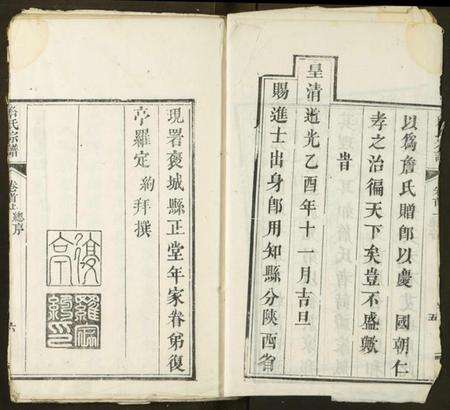 以為詹氏贈即以慶 國朝仁
孝之治徧天下矣豈不盛歟
旹
皇清道光乙酉年十一月吉旦
賜進士出身即用知縣分陝西省
現署褒城縣正堂年家眷弟復
亭羅定約拜撰
復亭
羅定約印
詹氏宗譜
卷首上總序
六
五